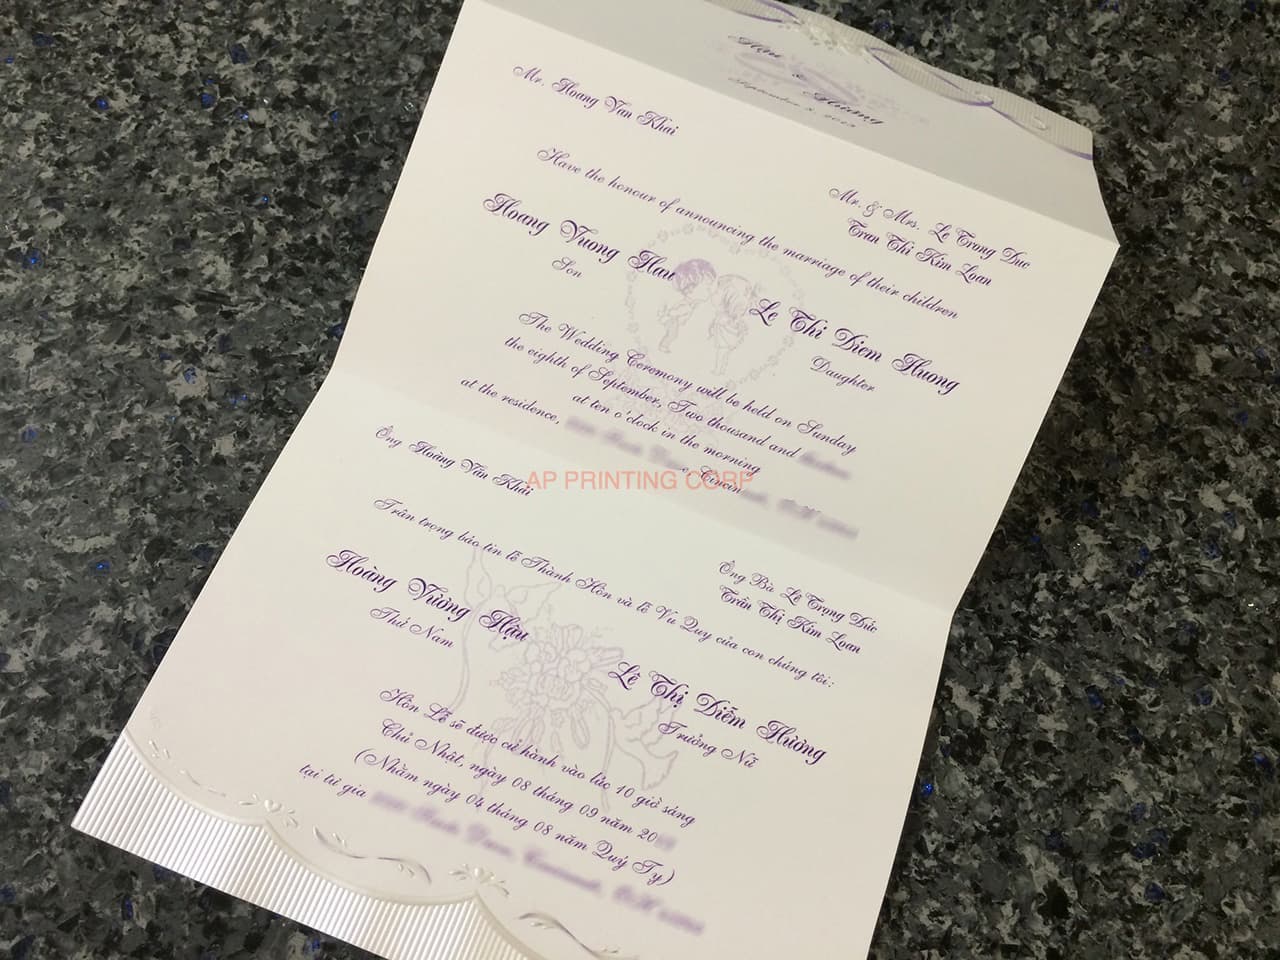 Hậu & Hương
September 8, 2013
Mr. Hoang Van Khai
Mr. & Mrs. Le Trong Duc
Tran Thi Kim Loan
Have the honour of announcing the marriage of their children
Hoang Vuong Hau
Son
Le Thi Diem Huong
Daughter
The Wedding Ceremony will be held on Sunday
the eighth of September, Two thousand and
at ten o'clock in the morning
at the residence,
AP PRINTING CORP
Ông Hoàng Văn Khải
Ông Bà Lê Trọng Đức
Trần Thị Kim Loan
Trân trọng báo tin lễ Thành Hôn và lễ Vu Quy của con chúng tôi:
Hoàng Vương Hậu
Thứ Nam
Lê Thị Diễm Hương
Trưởng Nữ
Hôn Lễ sẽ được cử hành vào lúc 10 giờ sáng
Chủ Nhật, ngày 08 tháng 09 năm 20
(Nhằm ngày 04 tháng 08 năm Quý Tỵ)
tại tư gia